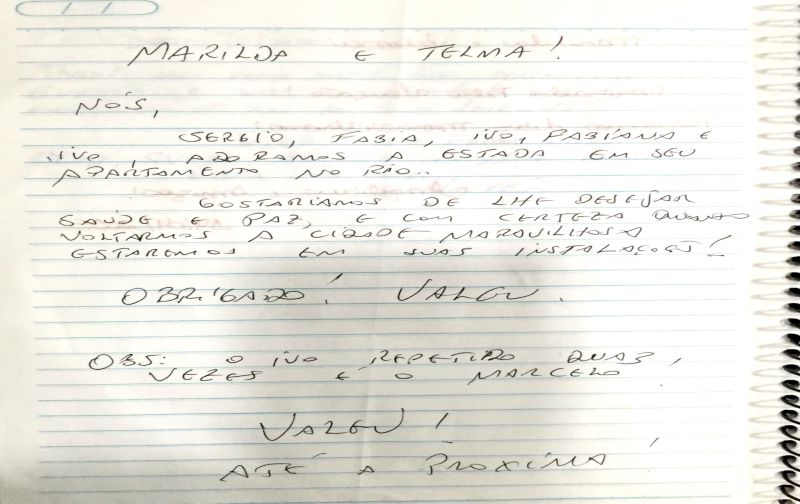 MARILDA E TELMA!
NÓS,
SERGIO, FABIA, IVO, FABIANA E
IVO, ADORAMOS A ESTADA EM SEU
APARTAMENTO NO RIO..
GOSTARIAMOS DE LHE DESEJAR
SAÚDE E PAZ, E COM CERTEZA QUANDO
VOLTARMOS A CIDADE MARAVILHOSA
ESTAREMOS EM SUAS INSTALAÇÕES!
OBRIGADO! VALEU.
OBS: O IVO REPETIDO DUAS
VEZES É O MARCELO.
VALEU!
ATÉ A PROXIMA!